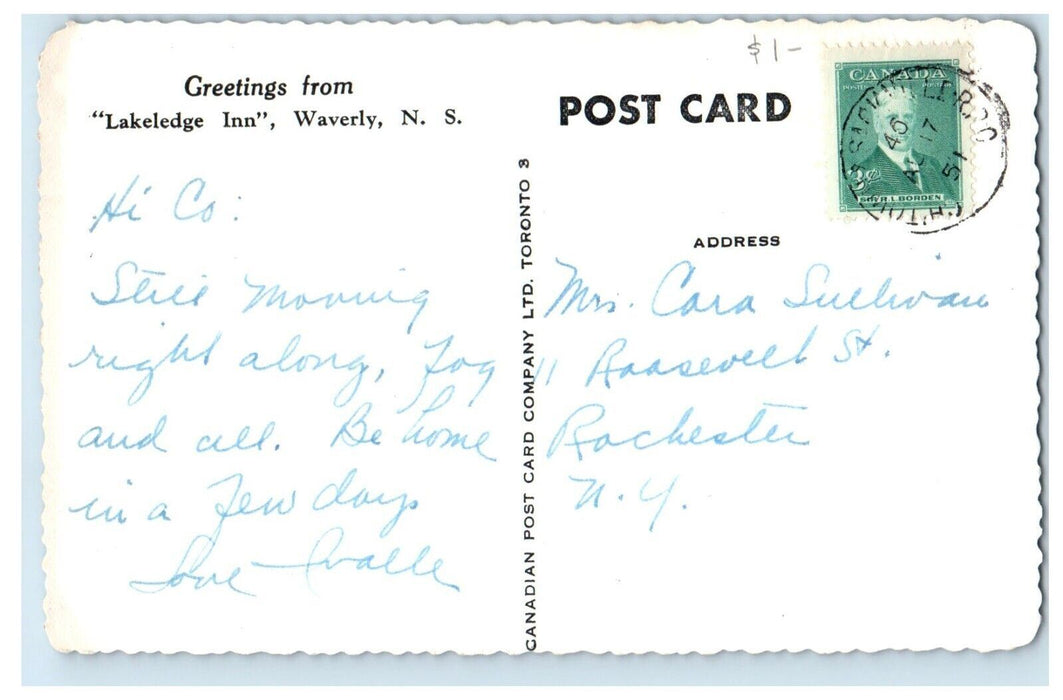 $1-
Greetings from
"Lakeledge Inn", Waverly, N. S.
POST CARD
CANADA
POSTES POSTAGE
3¢
SIR R. L. BORDEN
17
51
ADDRESS
CANADIAN POST CARD COMPANY LTD. TORONTO 3
Hi Co:
Still moving
right along, Fog
and all. Be home
in a few days
Love
Mrs. Cora Sullivan
11 Roosevelt St.
Rochester
N.Y.